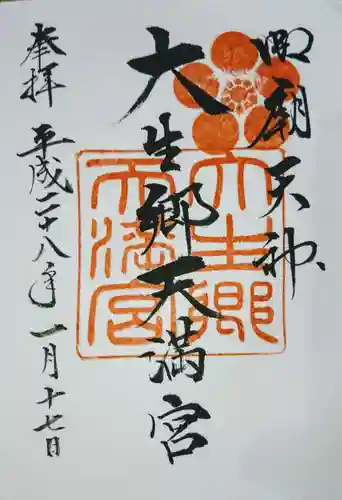 御廟天神
大生郷天満宮
奉拝
平成二十八年一月十七日
大生郷
天満宮